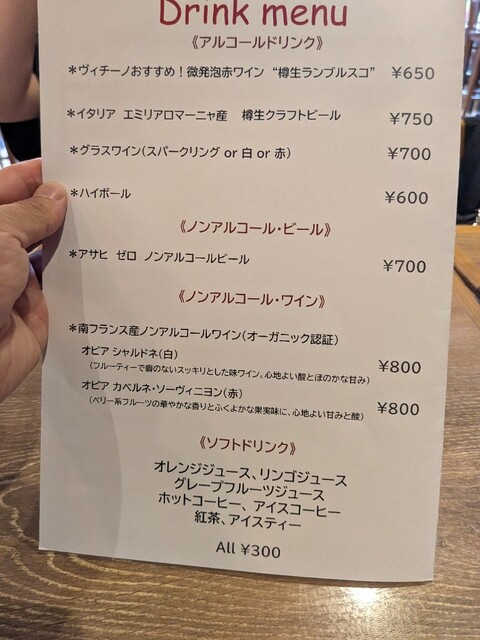 Drink menu
《アルコールドリンク》
＊ヴィチーノおすすめ！微発泡赤ワイン “樽生ランブルスコ” ¥650
＊イタリア エミリアロマーニャ産 樽生クラフトビール ¥750
＊グラスワイン(スパークリング or 白 or 赤) ¥700
＊ハイボール ¥600
《ノンアルコール・ビール》
＊アサヒ ゼロ ノンアルコールビール ¥700
《ノンアルコール・ワイン》
＊南フランス産ノンアルコールワイン(オーガニック認証)
オピア シャルドネ(白) ¥800
(フルーティーで癖のないスッキリとした味ワイン。心地よい酸とほのかな甘み)
オピア カベルネ・ソーヴィニヨン(赤) ¥800
(ベリー系フルーツの華やかな香りとふくよかな果実味に、心地よい甘みと酸)
《ソフトドリンク》
オレンジジュース、リンゴジュース
グレープフルーツジュース
ホットコーヒー、アイスコーヒー
紅茶、アイスティー
All ¥300